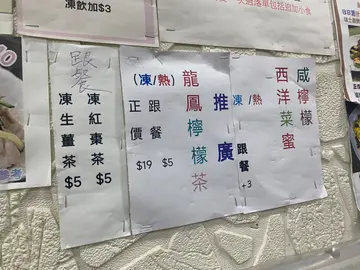 凍飲加$3
跟餐
凍紅棗茶 $5
凍生薑茶 $5
推廣
龍鳳檸檬茶
(凍/熱)
跟餐 $5
正價 $19
咸檸檬
西洋菜蜜
凍/熱
跟餐+3